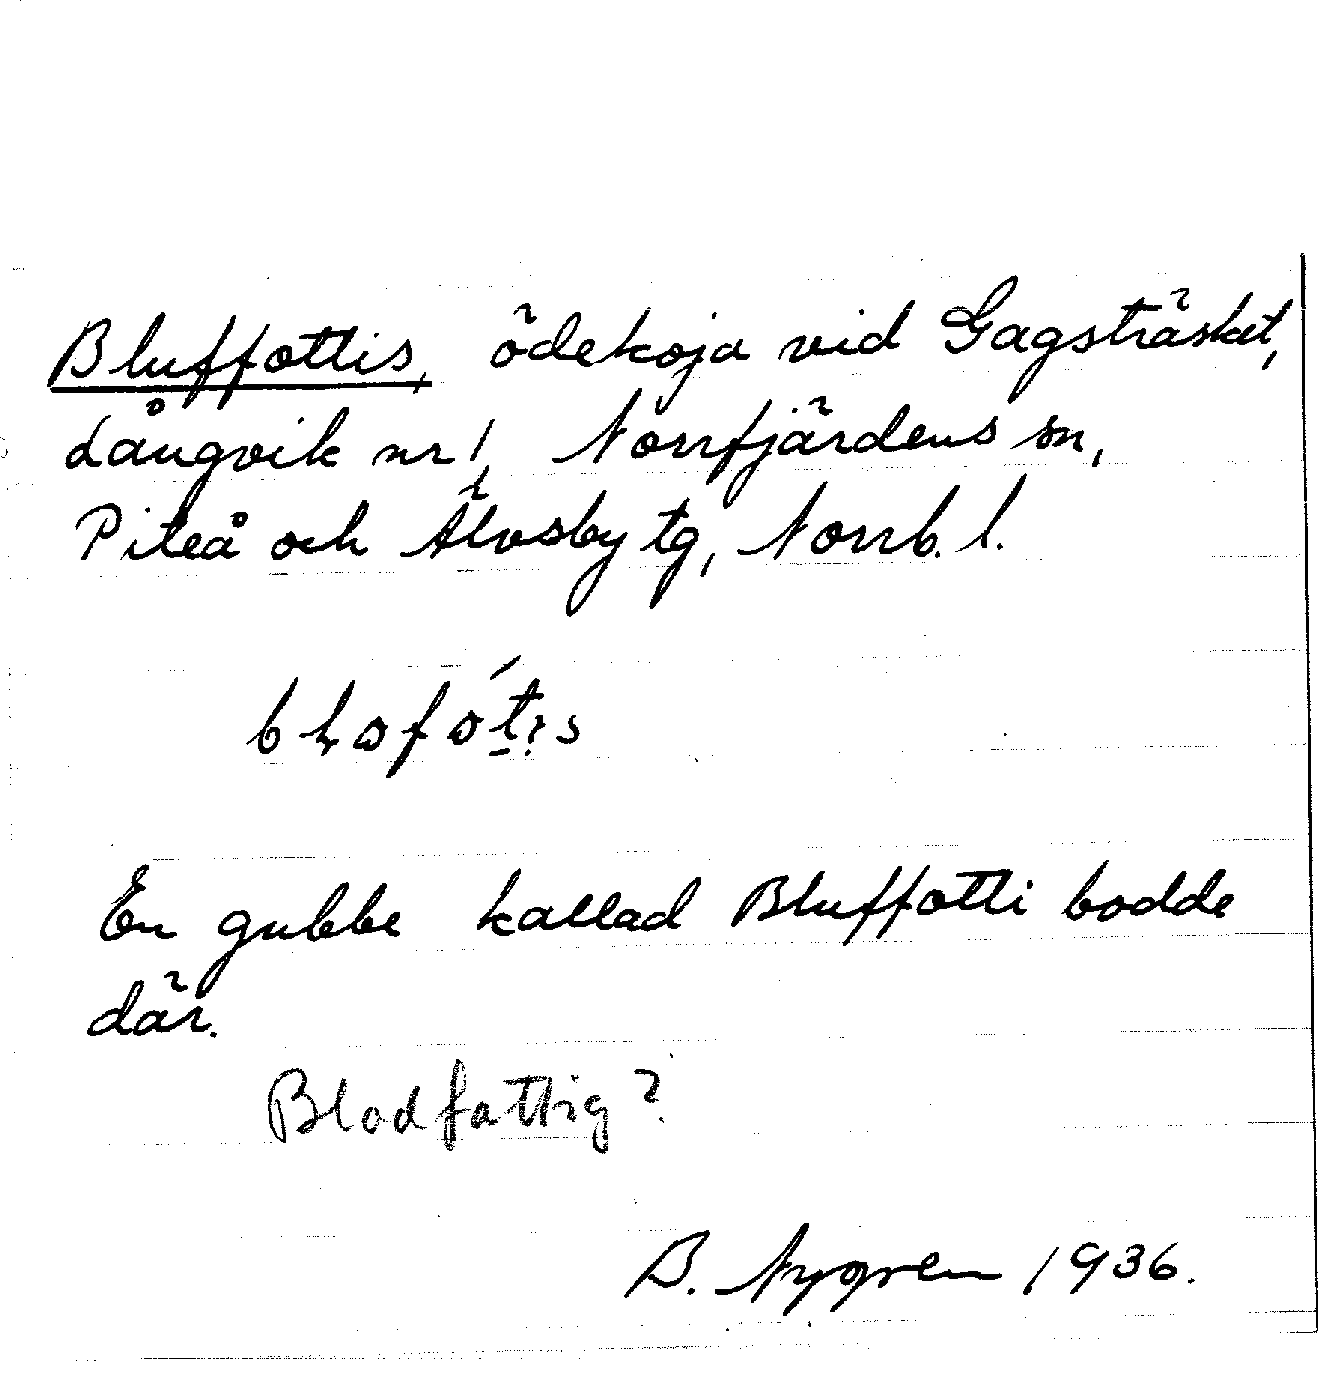 Bluffottis, ödekoja vid Gagsträsket,
Långvik nr 1, Norrfjärdens sn,
Piteå och Älvsby tg, Norrb. l.
En gubbe kallad Bluffotti bodde
där.
Blodfattig?
B. Nygren 1936.